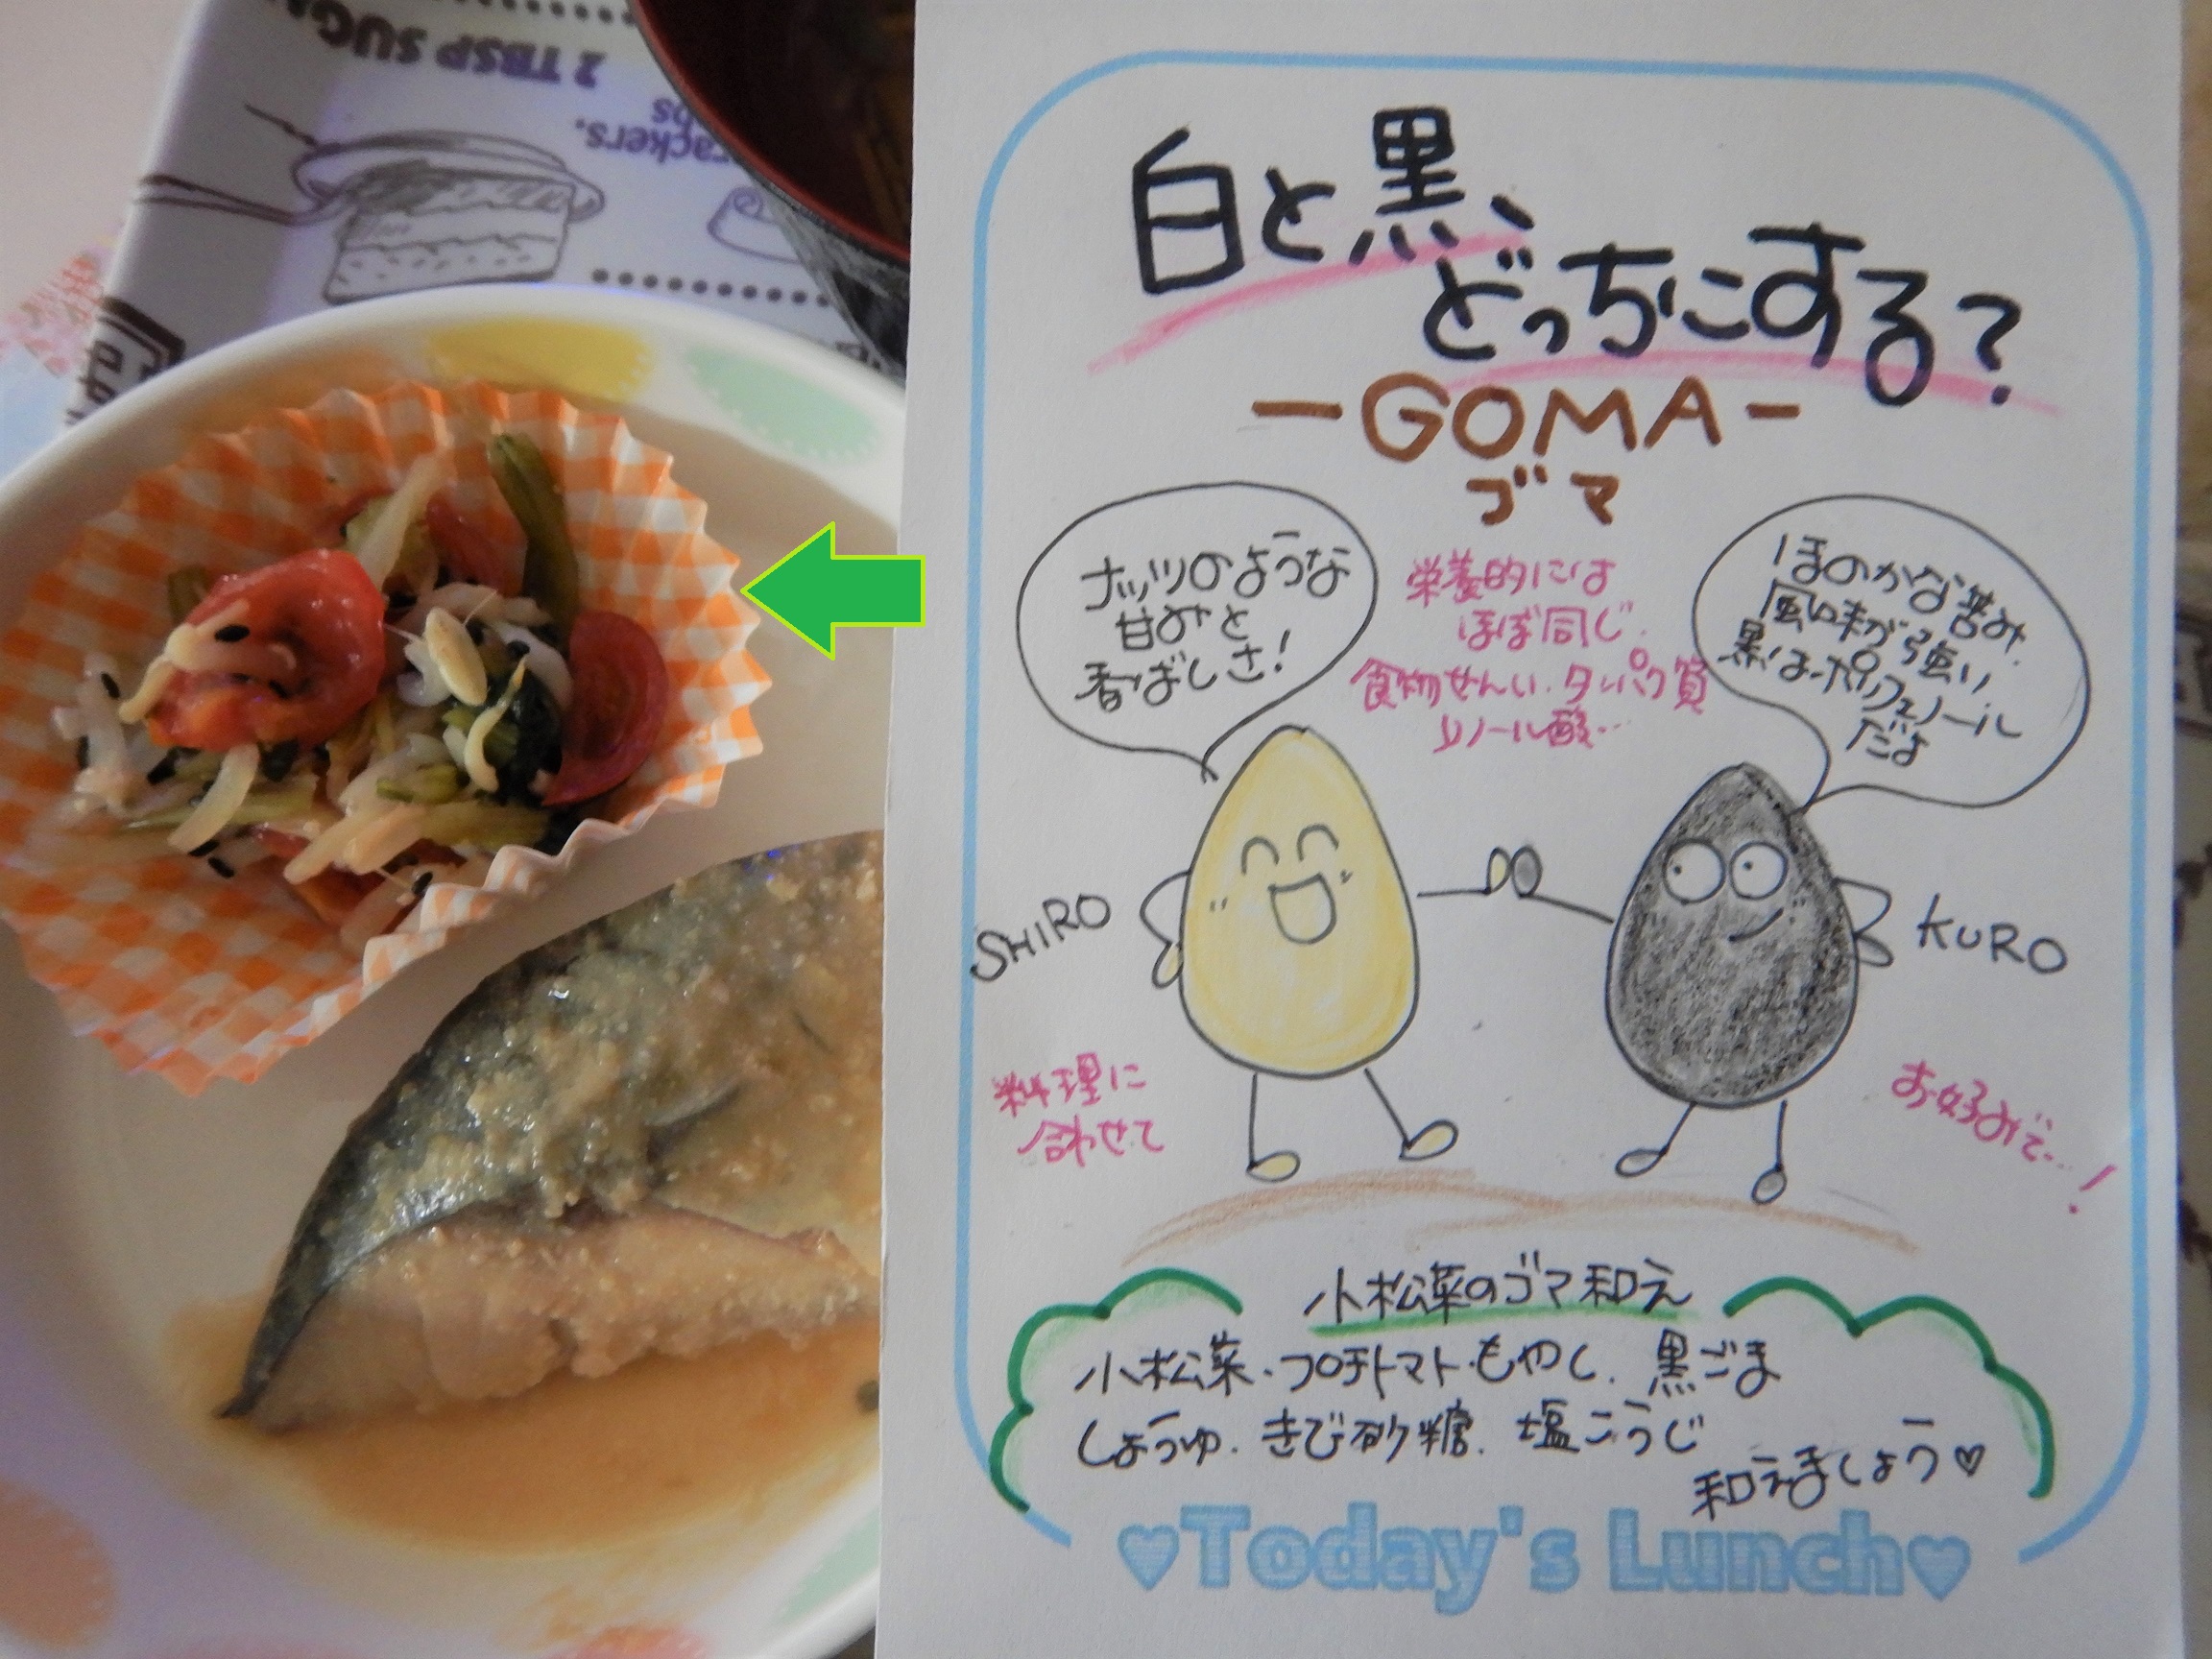 2 TBSP SUGA
白と黒、
どっちにする?
-GOMA-
ゴマ
ナッツのような
甘みと
香ばしさ!
栄養的には
ほぼ同じ.
食物せんい.タンパク質
リノール酸…
ほのかな苦み.
風味が強い
黒はポリフェノール
だよ
SHIRO
KURO
料理に
合わせて
お好みで…!
小松菜のゴマ和え
小松菜.プチトマト.もやし.黒ごま
しょうゆ.きび砂糖.塩こうじ
和えましょう♡
♥Today's Lunch♥